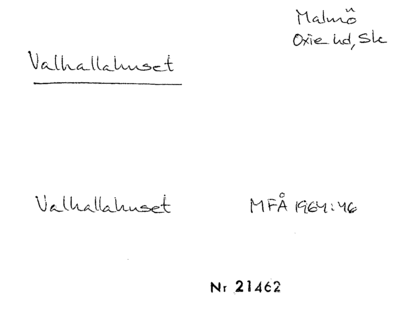 Malmö
Oxie hd, Sk
Valhallahuset
Valhallahuset MFÅ 1964:46
Nr 21462